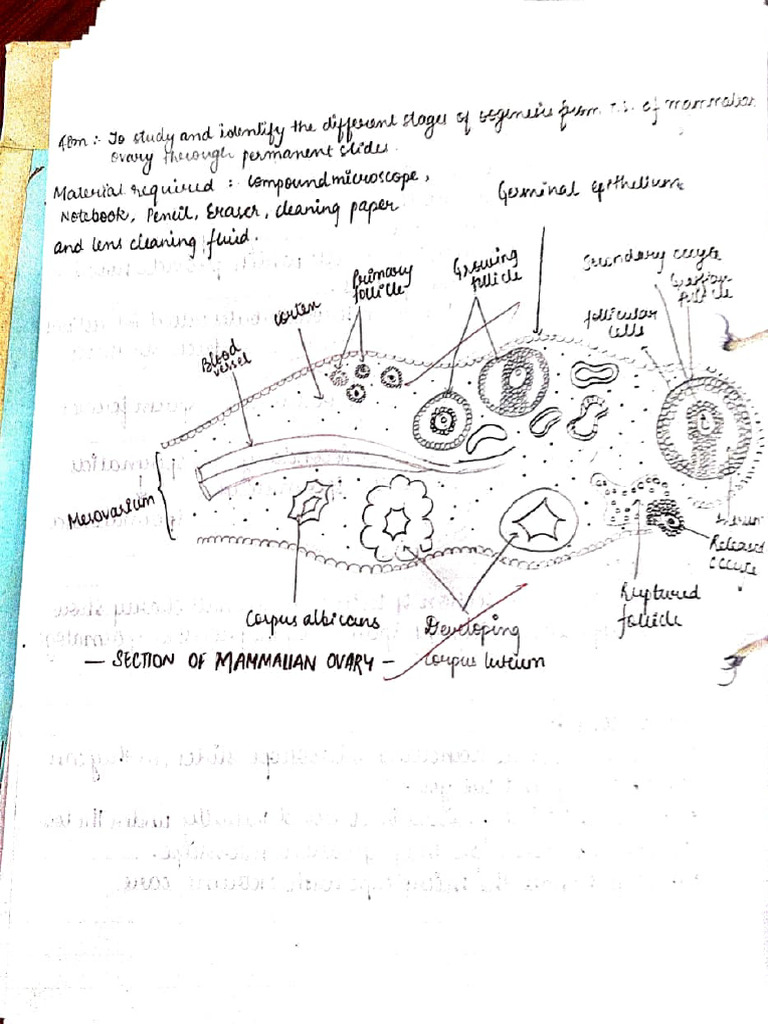 Aim :- To study and identify the different stages of oogenesis from T.S. of mammalian
ovary through permanent slides.
Material required :- Compound microscope,
Notebook, Pencil, Eraser, cleaning paper
and lens cleaning fluid.
Germinal epithelium
Primary
follicle
Growing
follicle
Secondary oocyte
Graafian
follicle
follicular
cells
cortex
Blood
vessel
Mesovarium
Released
Ruptured
follicle
Corpus albicans
Developing
corpus luteum
— SECTION OF MAMMALIAN OVARY —